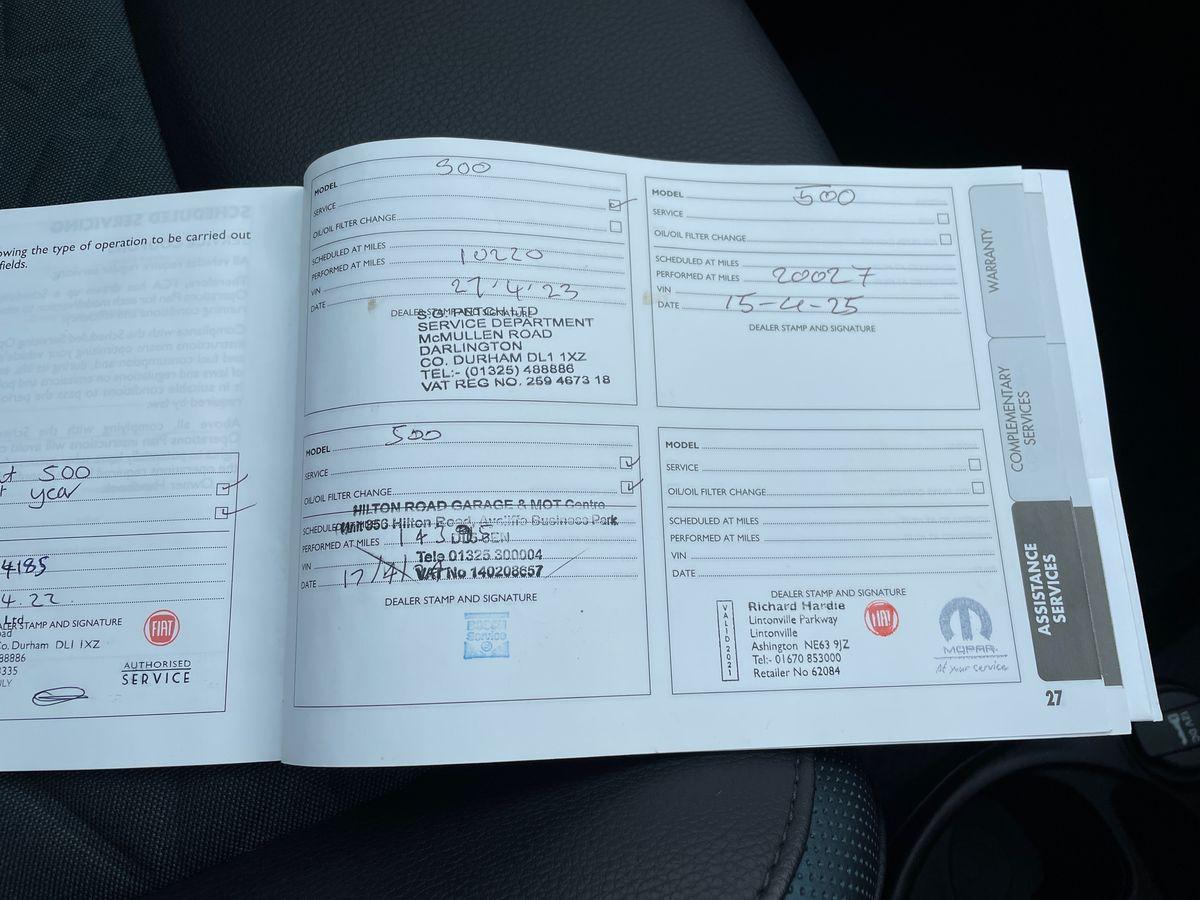 owing the type of operation to be carried out
fields.
SCHEDULED SERVICING
500
year
4185
4.22.
Ltd
DEALER STAMP AND SIGNATURE
Co. Durham DL1 1XZ
88886
3335
FIAT
AUTHORISED
SERVICE
MODEL 500
SERVICE
OIL/OIL FILTER CHANGE
SCHEDULED AT MILES
PERFORMED AT MILES 10220
VIN
DATE 27.4.23
DEALER STAMP AND SIGNATURE
SERVICE DEPARTMENT
McMULLEN ROAD
DARLINGTON
CO. DURHAM DL1 1XZ
TEL:- (01325) 488886
VAT REG NO. 259 4673 18
MODEL 500
SERVICE
OIL/OIL FILTER CHANGE
HILTON ROAD GARAGE & MOT Centre
Hilton Road, Aycliffe Business Park
SCHEDULED
PERFORMED AT MILES
Tele 01325 300004
VIN
VAT No 140208657
DATE 17/4/
DEALER STAMP AND SIGNATURE
BOSCH
Service
MODEL 500
SERVICE
OIL/OIL FILTER CHANGE
SCHEDULED AT MILES
PERFORMED AT MILES 20027
VIN
DATE 15-4-25
DEALER STAMP AND SIGNATURE
MODEL
SERVICE
OIL/OIL FILTER CHANGE
SCHEDULED AT MILES
PERFORMED AT MILES
VIN
DATE
DEALER STAMP AND SIGNATURE
VALID 2021
Richard Hardie
Lintonville Parkway
Lintonville
Ashington NE63 9JZ
Tel:- 01670 853000
Retailer No 62084
FIAT
MOPAR
At your service
WARRANTY
COMPLEMENTARY
SERVICES
ASSISTANCE
SERVICES
27